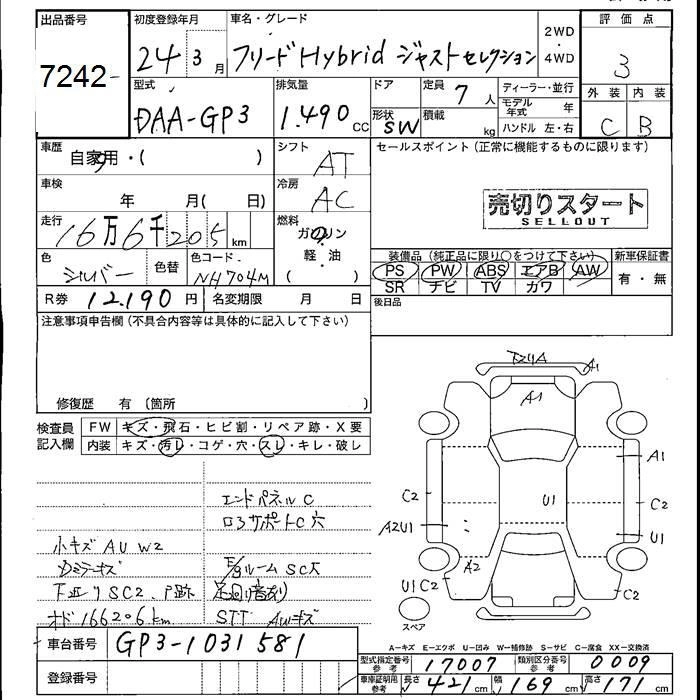 出品番号
初度登録年月
車名・グレード
2WD
・
4WD
評価点
7242
24 3月
フリード Hybrid ジャストセレクション
3
型式
排気量
ドア
定員
7人
ディーラー・並行
外装
内装
DAA-GP3
1.490 cc
形状
SW
積載
kg
モデル年式
年
ハンドル 左・右
C
B
車歴
自家用・( )
シフト
AT
セールスポイント(正常に機能するものに限ります)
車検
年 月( 日)
冷房
AC
売切りスタート
SELLOUT
走行
16万6千205km
燃料
ガソリン
軽・油
( )
色
シルバー
色替
色コード
NH704M
装備品(純正品に限り○をつけて下さい)
新車保証書
PS PW ABS エアB AW
有・無
SR ナビ TV カワ
R券
12.190円
名変期限
月 日
後日品
注意事項申告欄(不具合内容等は具体的に記入して下さい)
修復歴 有 〔箇所 〕
検査員
記入欄
FW
キズ・飛石・ヒビ割・リペア跡・X要
内装
キズ・汚レ・コゲ・穴・スレ・キレ・破レ
A1
A1
A1
C2
U1
C2
A2U1
U1
A2
U1C2
C2
スペア
エンドパネルC
コアサポートC穴
小キズ AU W2
下廻りSC2
ルームSC大
オド166206km
STT AWキズ
車台番号
GP3-1031581
登録番号
A=キズ E=エクボ U=凹み W=補修跡 S=サビ C=腐食 XX=交換済
型式指定番号
参考
17007
類別区分番号
参考
0009
車庫証明用
参考
長さ 421cm
幅 169cm
高さ 171cm